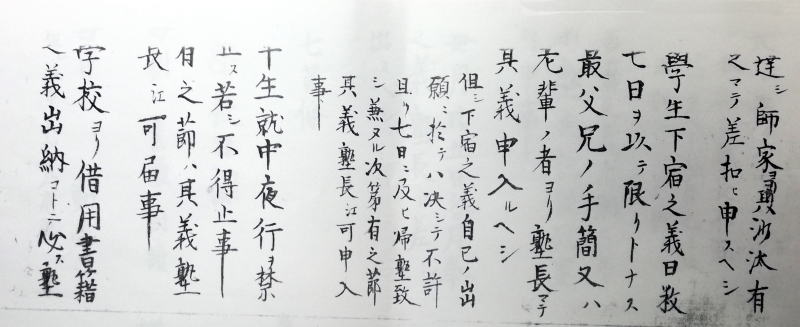 達シ師家ヨリ沙汰有
之マテ差扣ヒ申スヘシ
學生下宿之義日数
七日ヲ以テ限リトナス
最父兄ノ手簡又ハ
老輩ノ者ヨリ塾長マテ
其義申入ルヘシ
但シ下宿之義自己ノ出
願ニ於テハ決シテ不許
且ツ七日ニ及ヒ帰塾致
シ兼ヌル次第有之節
其義塾長江可申入
事
生就中夜行ヲ禁
止ス若シ不得止事
有之節ハ其義塾
長江可届事
学校ヨリ借用書籍
義出納コトニ必ス塾